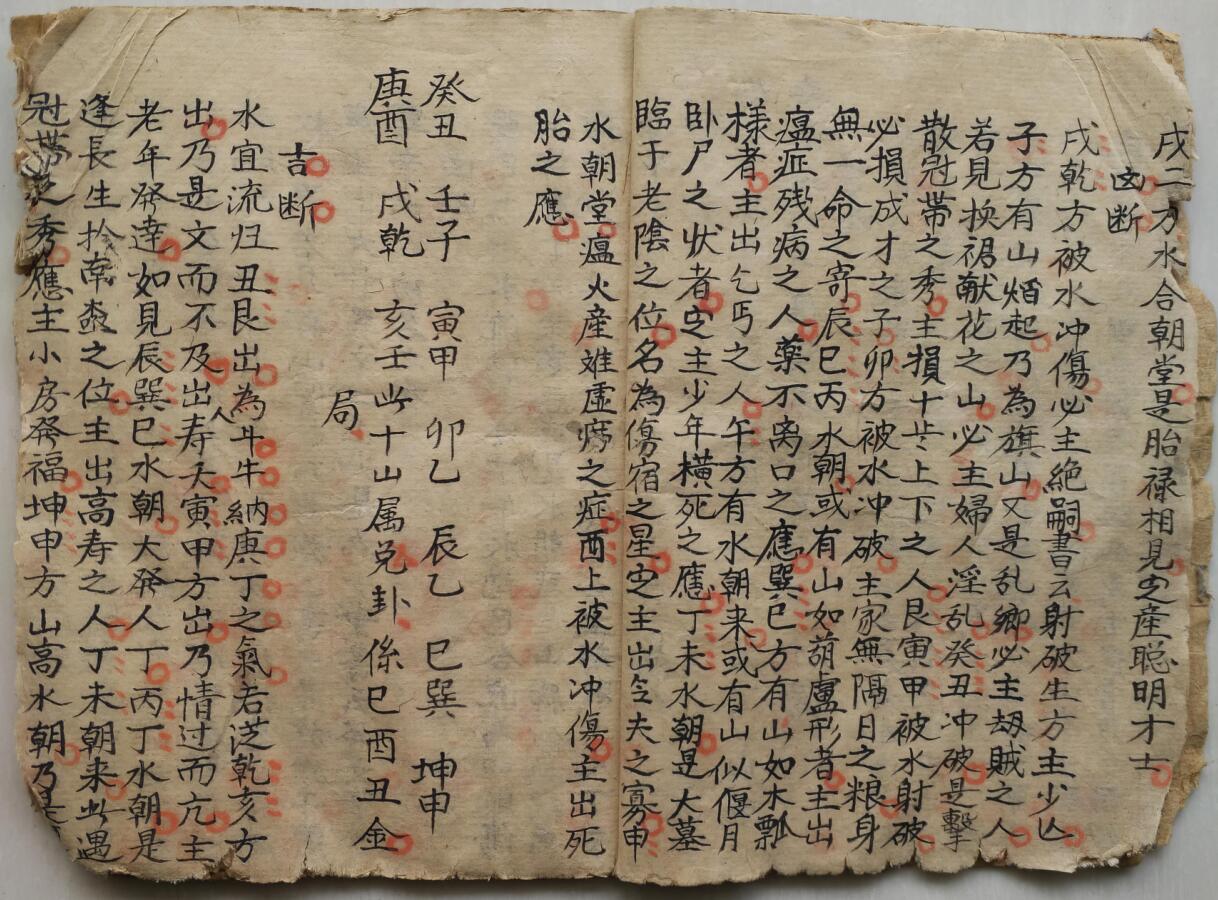 戌二方水合朝堂是胎禄相見定産聰明才士
凶断
戌乾方被水冲傷必主絶嗣書云射破生方主少亾
子方有山熖起乃為旗山又是乱鄉必主刼贼之人
若見换裙献花之山必主婦人淫乱癸丑冲破是擊
散冠帶之秀主損十上下之人艮寅甲被水射破
必損成才之子卯方被水冲破主家無隔日之粮身
無一命之寄辰巳丙水朝或有山如葫蘆形者主出
瘟症残病之人藥不离口之應巽巳方有山如木瓢
樣者主出乞丐之人午方有水朝来或有山似偃月
卧尸之状者定主少年横死之應丁未水朝是大墓
臨于老陰之位名為傷宿之星定主出尅夫之寡申
水朝堂瘟火産难虚痨之症酉上被水冲傷主出死
胎之應
癸丑 壬子 寅甲 卯乙 辰乙 巳巽 坤申
庚酉 戌乾 亥壬此十山属兑卦係巳酉丑金
局
吉断
水宜流归丑艮出為斗牛納庚丁之氣若泛乾亥方
出乃是文而不及出人寿夭寅甲方出乃情过而亢主
老年發達如見辰巽巳水朝大發人丁丙丁水朝是
逢長生扵南桼之位主出高寿之人丁未朝来此遇
冠帶之秀應主小房發福坤申方山高水朝乃是